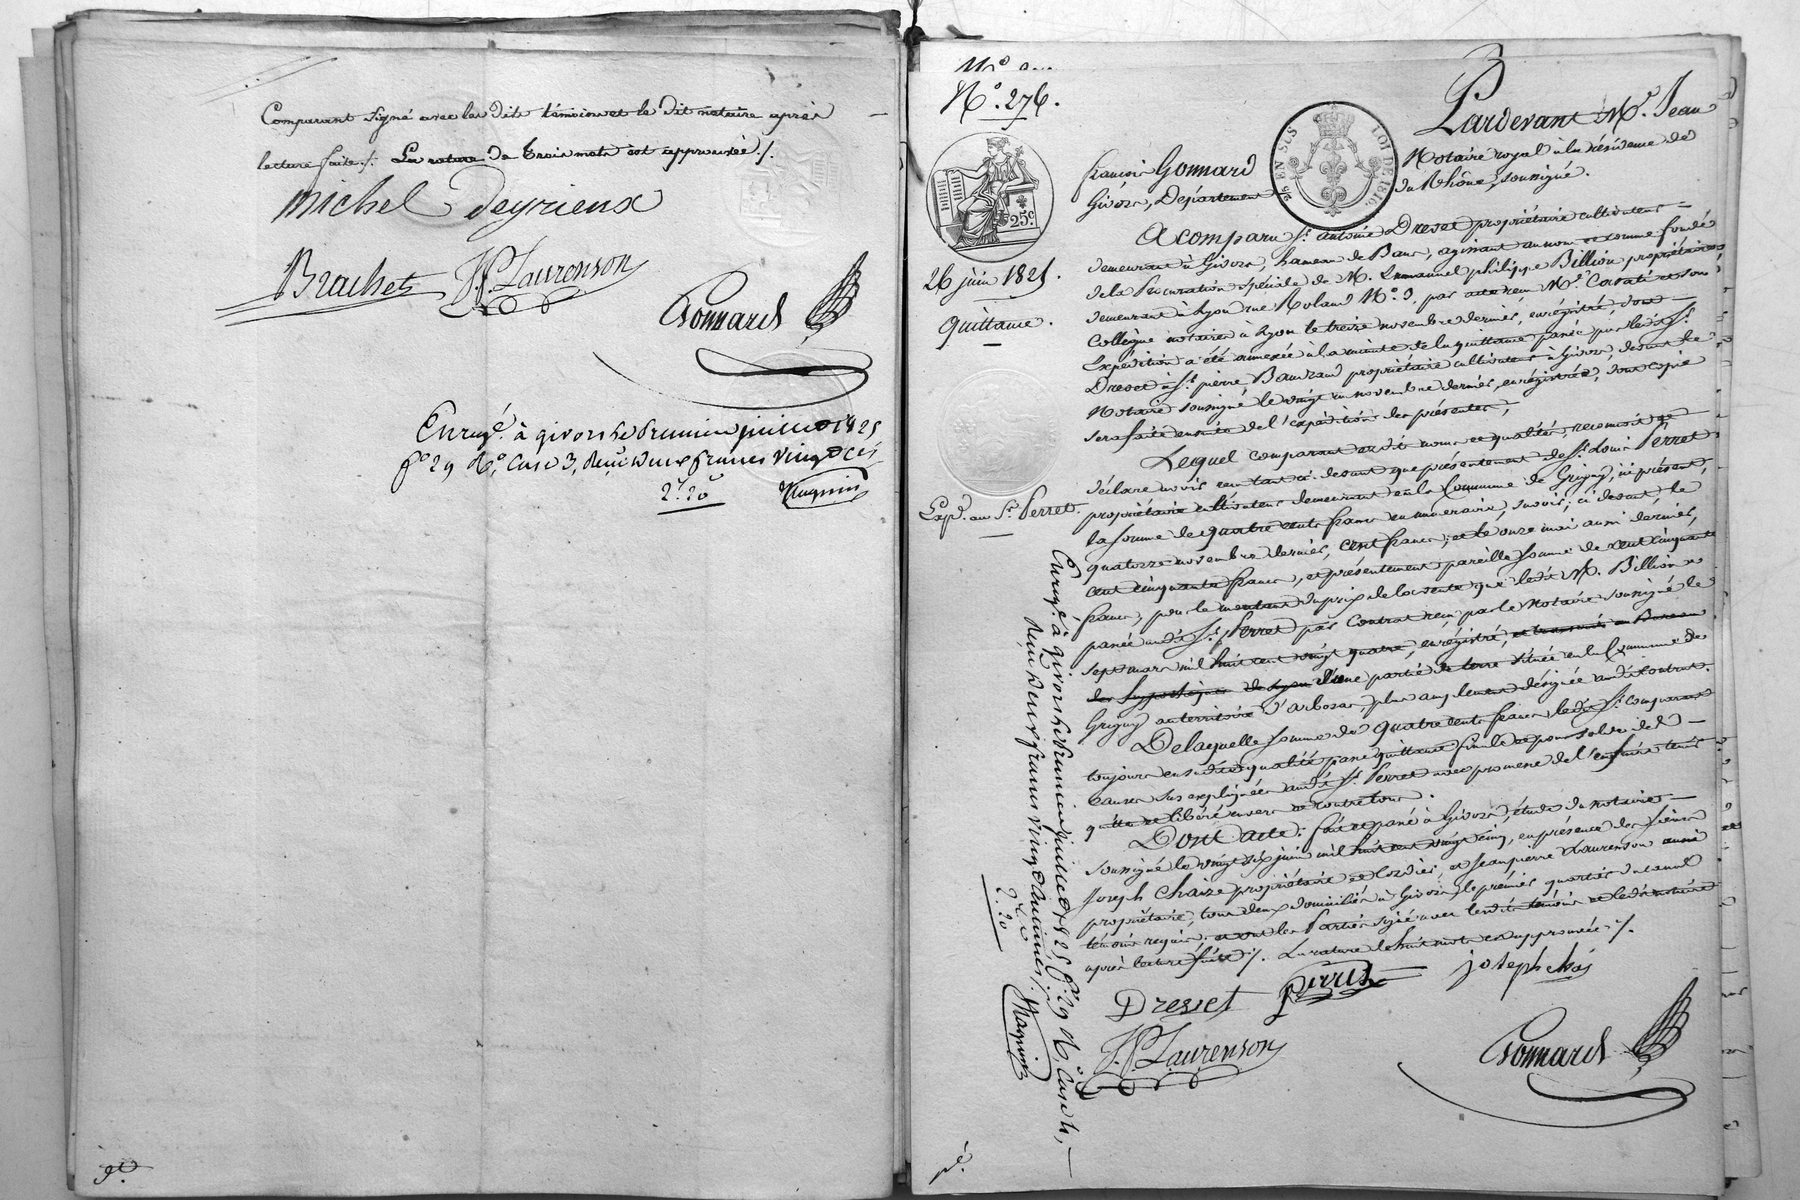 Comparant signé avec les dits témoins et le dit notaire après
lecture faite ./. La rature de trois mots est approuvée ./.
michel deyrieux
Brachet J.P. Laurenson
Gonnard
Enregé. à givors le premier juillet 1825
fo. 29 Ro. Case 3, Reçu deux francs vingt ces
2f. 20c
No. 276.
25c.
26 juin 1825.
Quittance.
Expd. au Sr. Perret.
LOI DE 1816
Pardevant Me. Jean
françois Gonnard Notaire royal à la résidence de
Givors, Département du Rhône, soussigné.
A comparu Sr. antoine Drevet propriétaire cultivateur
demeurant à Givors, hameau de Bans, agissant au nom et comme fondé
de la Procuration spéciale de M. Emmanuel philippe Billion, propriétaire
demeurant à Lyon rue Roland No. 3, par acte reçu Me. Cavati et son
Collègue notaires à Lyon le treize novembre dernier, enregistré, dont
Expédition a été annexée à la minute de la quittance passée par ledit Sr.
Drevet à Sr. pierre Bauzand propriétaire cultivateur à Givors, devant le
Notaire soussigné le vingt un novembre dernier, enregistrée, dont copie
sera faite ensuite de l'expédition des présentes,
Lequel comparant audit nom et qualité, reconnait et
déclare avoir reçu tant ci devant que présentement de Sr. Louis Perret
propriétaire cultivateur demeurant en la Commune de Grigny, ici présent,
la somme de quatre cents francs en numéraire, savoir, ci devant, le
quatorze novembre dernier, cent francs; et le onze mai aussi dernier,
cent cinquante francs, et présentement pareille somme de cent cinquante
francs, pour le montant du prix de la vente que ledit M. Billion a
passée audit Sr. Perret par Contrat reçu par le Notaire soussigné le
sept mars mil huit cent vingt quatre, enregistré, et transcrit au Bureau
des hypothèques de Lyon d'une partie de terre située en la Commune de
Grigny au territoire d'arbosas plus amplement désignée audit Contrat.
De laquelle somme de quatre cents francs ledit Sr. comparant
toujours en sadite qualité passe quittance finale et pour solde des
causes sus expliquées audit Sr. Perret avec promesse de l'en faire tenir
quitte et libéré envers et contre tous.
Dont acte: fait et passé à Givors, étude du notaire
soussigné le vingt six juin mil huit cent vingt cinq, en présence des sieurs
Joseph Chaize propriétaire et Cordier, et Jean pierre Laurenson aussi
propriétaire, tous deux domiciliés à Givors, le premier quartier du canal
témoins requis. et ont les Parties signé avec lesdits témoins et ledit notaire
après lecture faite ./. La rature de huit mots est approuvée ./.
Drevet Perret joseph chaiz
J.P. Laurenson Gonnard
Enregé. à givors le premier juillet 1825, fo. 29 Ro. Case 4,
Reçu deux francs vingt centimes ./.
2f. 20c